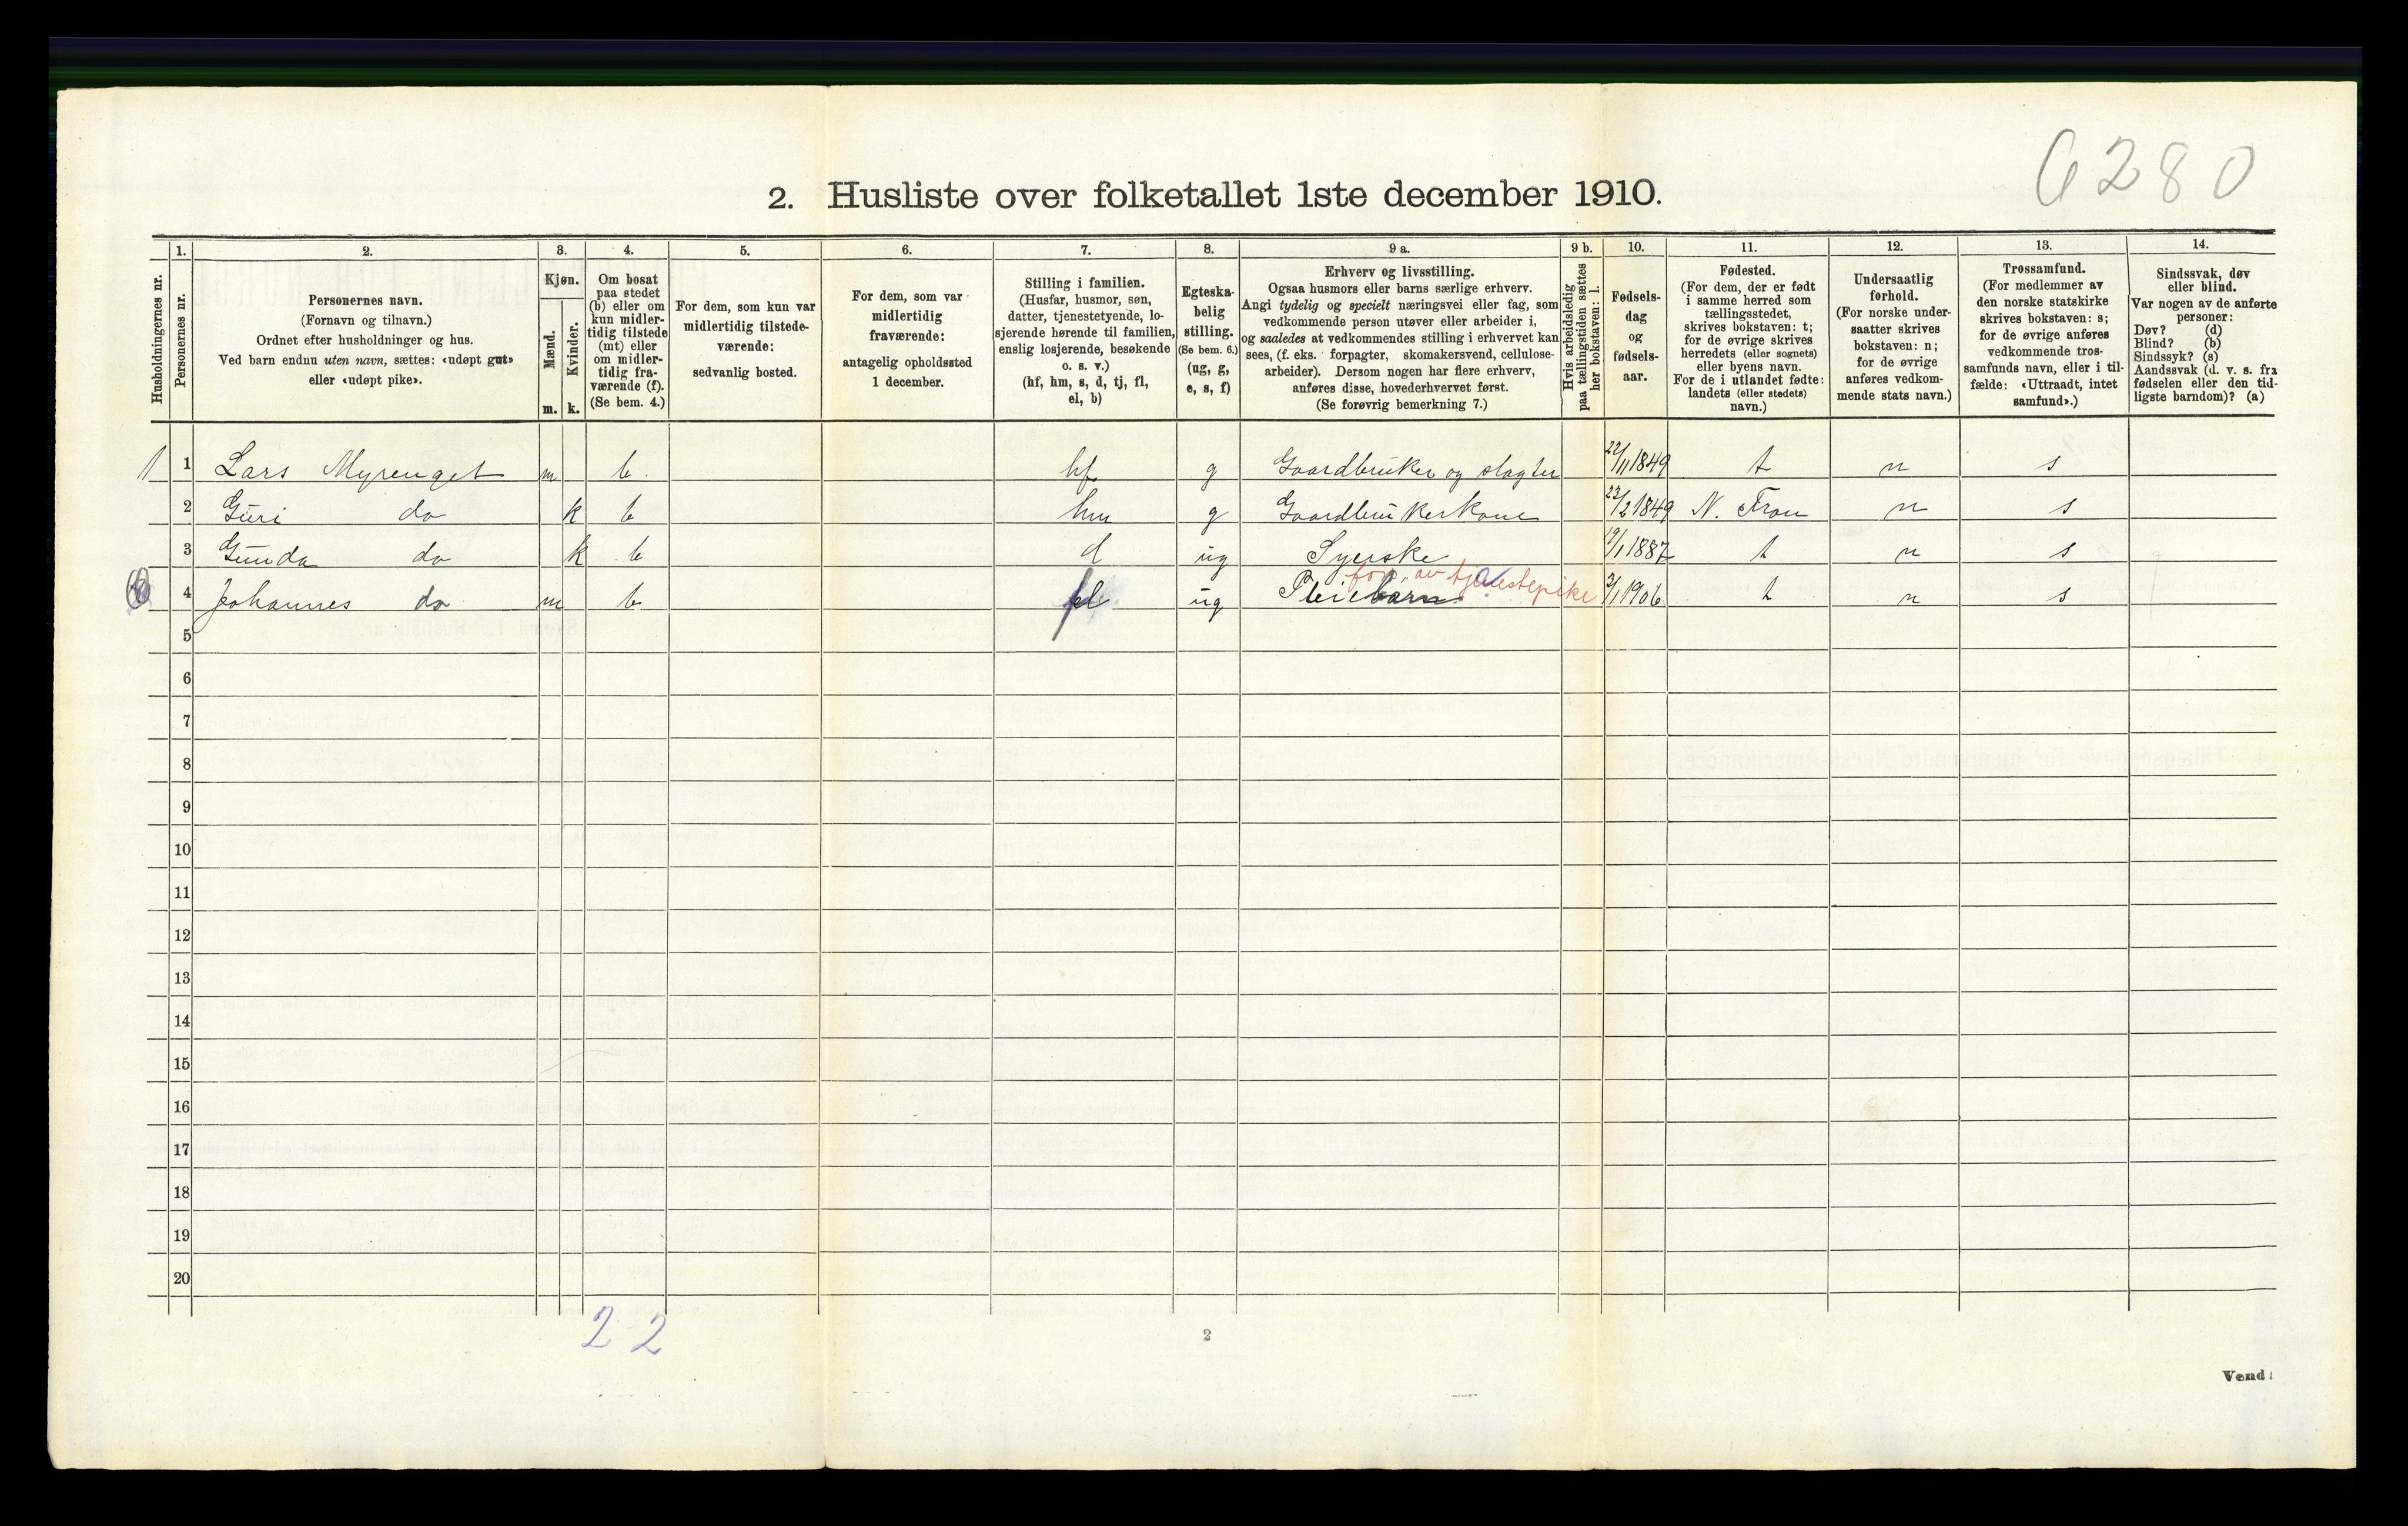 6280
2. Husliste over folketallet 1ste december 1910.
Husholdningernes nr.
1.
Personernes nr.
2.
Personernes navn.
(Fornavn og tilnavn.)
Ordnet efter husholdninger og hus.
Ved barn endnu uten navn, sættes: «udøpt gut»
eller «udøpt pike».
3.
Kjøn.
Mænd.
Kvinder.
m. k.
4.
Om bosat
paa stedet
(b) eller om
kun midler-
tidig tilstede
(mt) eller
om midler-
tidig fra-
værende (f).
(Se bem. 4.)
5.
For dem, som kun var
midlertidig tilstede-
værende:
sedvanlig bosted.
6.
For dem, som var
midlertidig
fraværende:
antagelig opholdssted
1 december.
7.
Stilling i familien.
(Husfar, husmor, søn,
datter, tjenestetyende, lo-
sjerende hørende til familien,
enslig losjerende, besøkende
o. s. v.)
(hf, hm, s, d, tj, fl,
el, b)
8.
Egteska-
belig
stilling.
(Se bem. 6.)
(ug, g,
e, s, f)
9 a.
Erhverv og livsstilling.
Ogsaa husmors eller barns særlige erhverv.
Angi tydelig og specielt næringsvei eller fag, som
vedkommende person utøver eller arbeider i,
og saaledes at vedkommendes stilling i erhvervet kan
sees, (f. eks. forpagter, skomakersvend, cellulose-
arbeider). Dersom nogen har flere erhverv,
anføres disse, hovederhvervet først.
(Se forøvrig bemerkning 7.)
9 b.
Hvis arbeidsledig
paa tællingstiden sættes
her bokstaven: l.
10.
Fødsels-
dag
og
fødsels-
aar.
11.
Fødested.
(For dem, der er født
i samme herred som
tællingsstedet,
skrives bokstaven: t;
for de øvrige skrives
herredets (eller sognets)
eller byens navn.
For de i utlandet fødte:
landets (eller stedets)
navn.)
12.
Undersaatlig
forhold.
(For norske under-
saatter skrives
bokstaven: n;
for de øvrige
anføres vedkom-
mende stats navn.)
13.
Trossamfund.
(For medlemmer av
den norske statskirke
skrives bokstaven: s;
for de øvrige anføres
vedkommende tros-
samfunds navn, eller i til-
fælde: «Uttraadt, intet
samfund».)
14.
Sindssvak, døv
eller blind.
Var nogen av de anførte
personer:
Døv? (d)
Blind? (b)
Sindssyk? (s)
Aandssvak (d. v. s. fra
fødselen eller den tid-
ligste barndom)? (a)
1 1 Lars Myrenget m b hf g Gaardbruker og slagter 22/11 1849 t n s
2 Guri do k b hm g Gaardbrukerkone 23/2 1849 N. Fron n s
3 Gunda do k b d ug Syerske 19/1 1887 t n s
for. av tjenestepike
4 Johannes do m b ug Pleiebarn 3/1 1906 t n s
5
6
7
8
9
10
11
12
13
14
15
16
17
18
19
20
2-2
2
Vend!